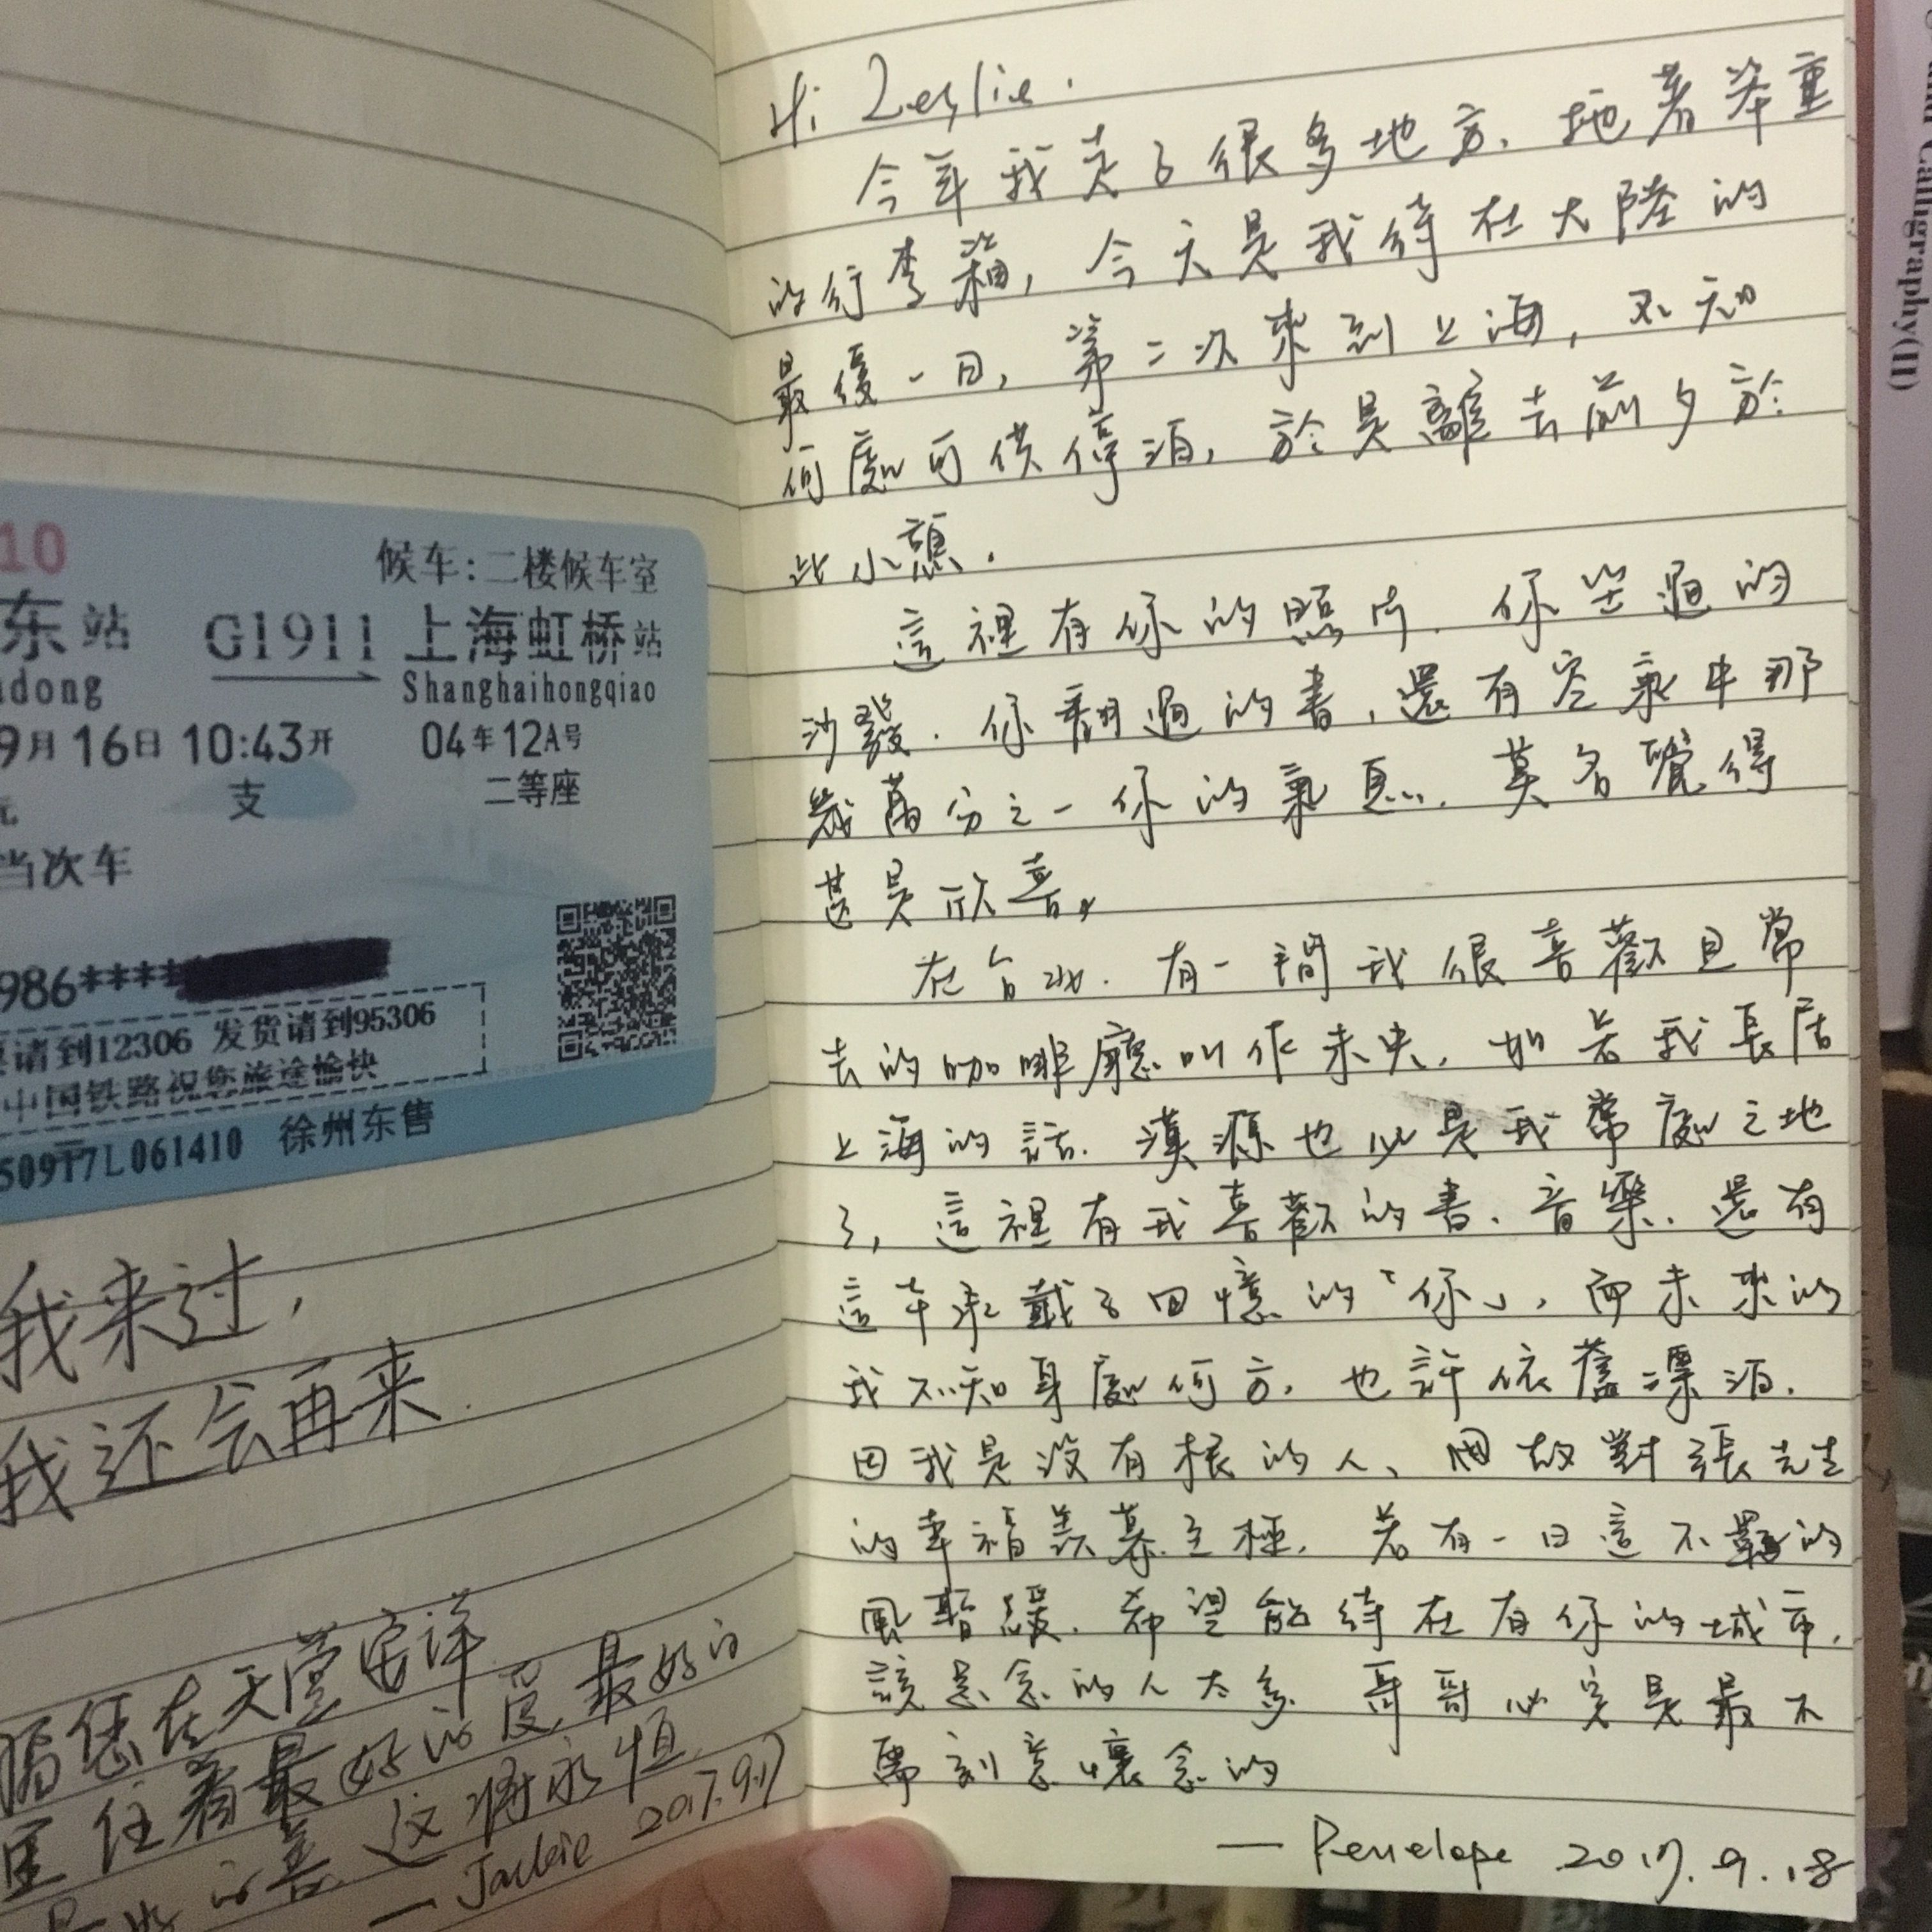 10
候车:二楼候车室
东站 G1911 上海虹桥站
dong Shanghaihongqiao
9月16日 10:43开 04车12A号
元 支 二等座
当次车
986****
请到12306 发货请到95306
中国铁路祝您旅途愉快
50917L061410 徐州东售
我来过,
我还会再来.
您在天堂安详
住着最好的爱,最好的
这将永恒
— Jackie 2017.9.17
Hi Leslie.
今年我走了很多地方、拖著笨重
的行李箱,今天是我待在大陸的
最後一日,第二次來到上海,不知
何處可供停泊,於是離去前夕於
此小憩.
這裡有你的照片.你坐過的
沙發.你翻過的書,還有空氣中那
幾萬分之一你的氣息.莫名覺得
甚是欣喜。
在台北.有一間我很喜歡且常
去的咖啡廳叫作未央,如若我長居
上海的話.漢源也必是我常處之地
了,這裡有我喜歡的書、音樂.還有
這年承載了回憶的「你」,而未來的
我不知身處何方,也許依舊漂泊.
因我是沒有根的人、因故對張先生
的幸福羨慕至極.若有一日這不羈的
風暫緩.希望能待在有你的城市.
該思念的人太多 哥哥必定是最不
需刻意懷念的
— Penelope 2017.9.18
Calligraphy(II)